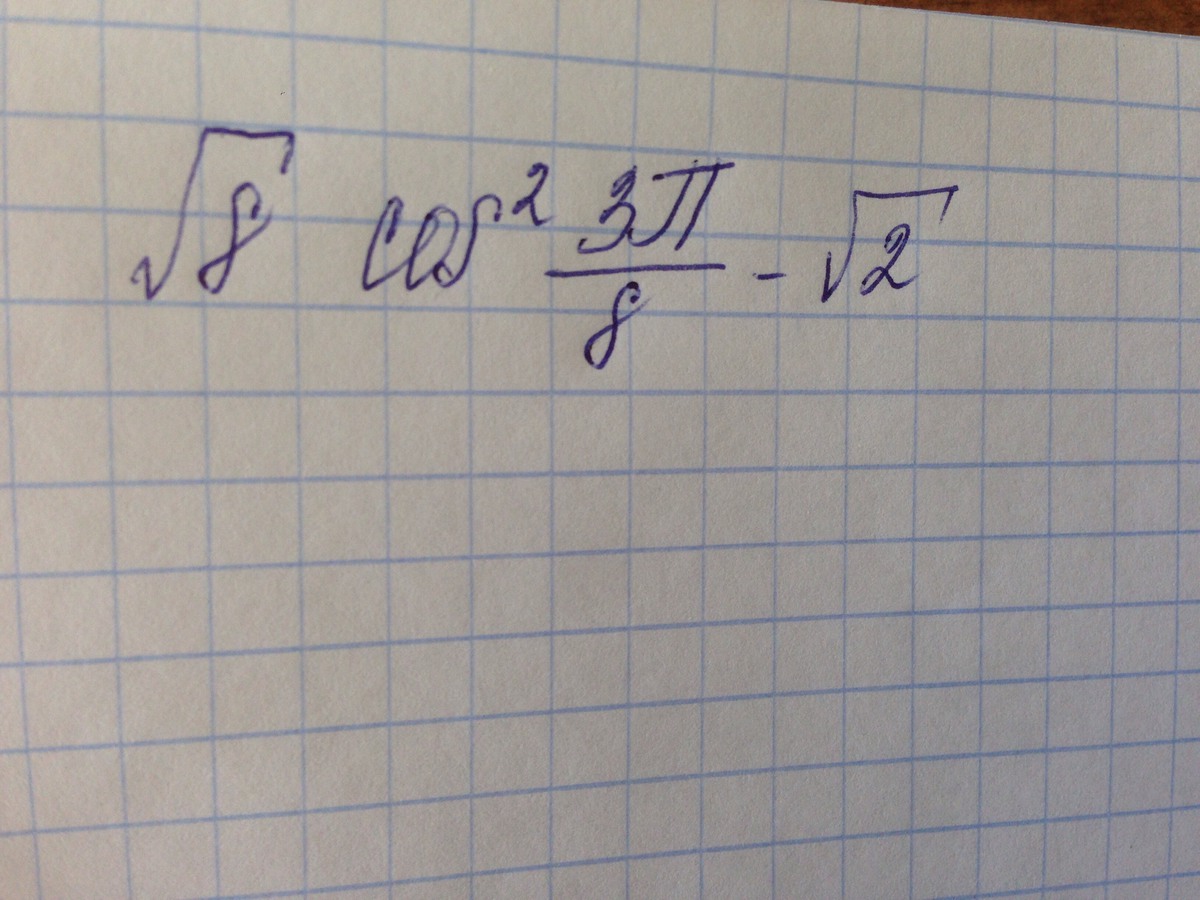 √8 cos² 3π/8 - √2